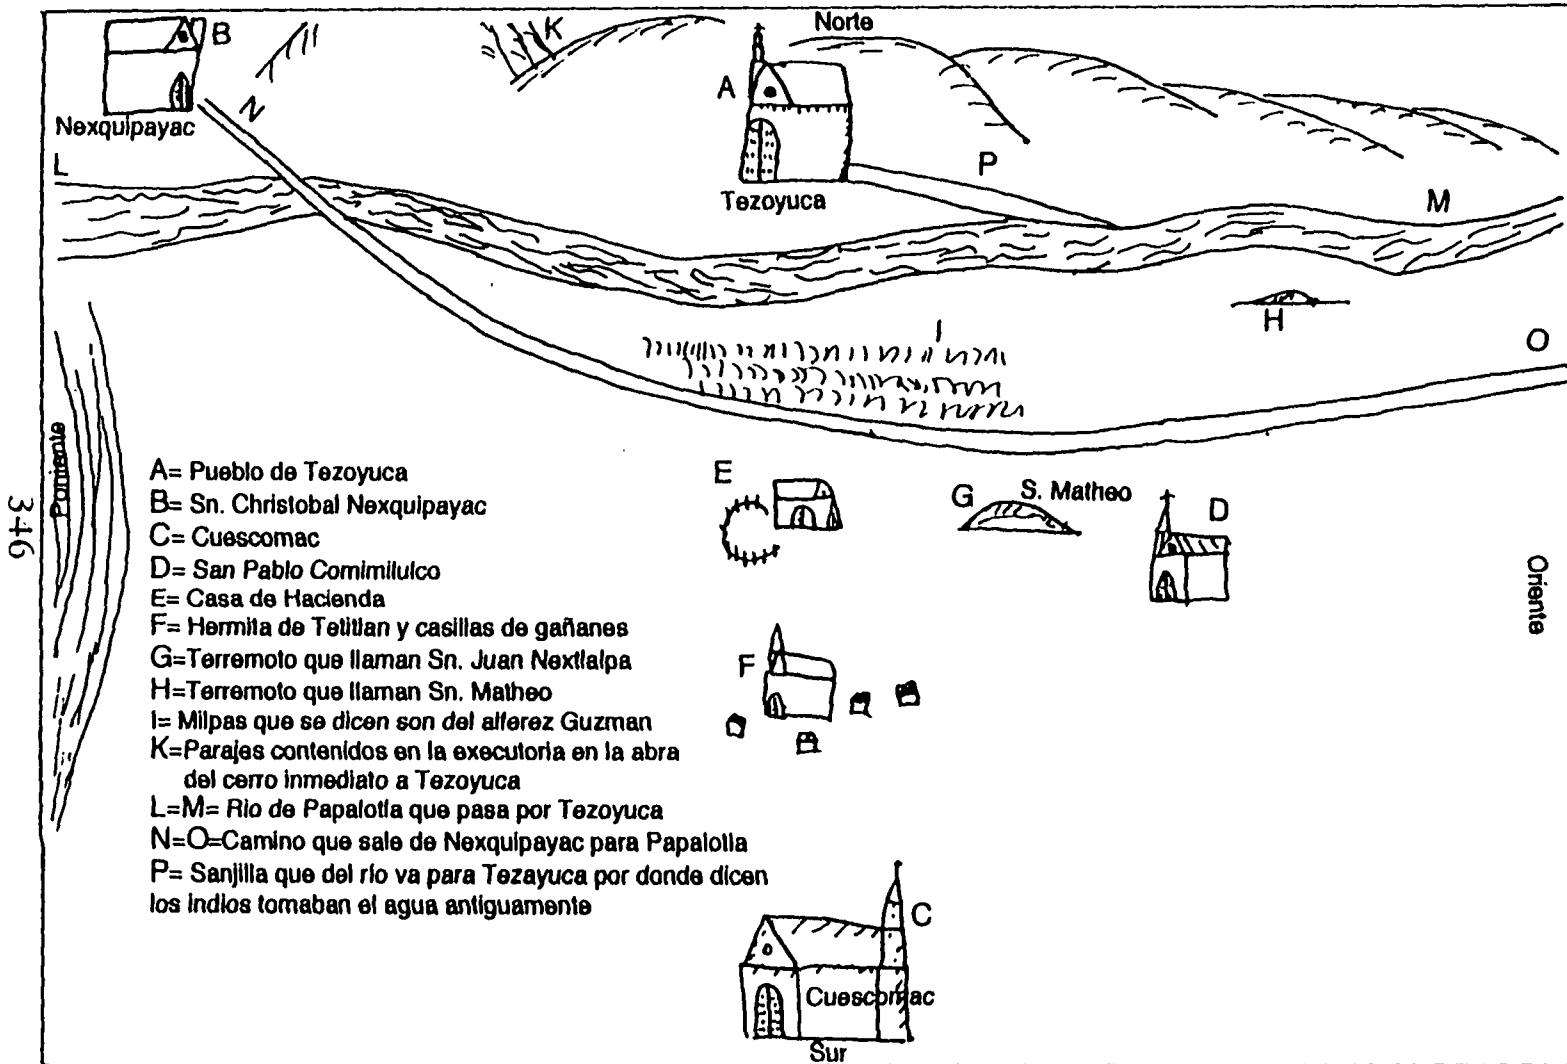 Norte
B
K
A
N
Nexquipayac
L
P
Tezoyuca
M
H
I
O
Poniente
346
A= Pueblo de Tezoyuca
B= Sn. Christobal Nexquipayac
C= Cuescomac
D= San Pablo Comimilulco
E= Casa de Hacienda
F= Hermita de Tetitlan y casillas de gañanes
G=Terremoto que llaman Sn. Juan Nextlalpa
H=Terremoto que llaman Sn. Matheo
I= Milpas que se dicen son del alferez Guzman
K=Parajes contenidos en la executoria en la abra
del cerro inmediato a Tezoyuca
L=M= Rio de Papalotla que pasa por Tezoyuca
N=O=Camino que sale de Nexquipayac para Papalotla
P= Sanjilla que del río va para Tezayuca por donde dicen
los indios tomaban el agua antiguamente
E
G
S. Matheo
D
Oriente
F
C
Cuescomac
Sur